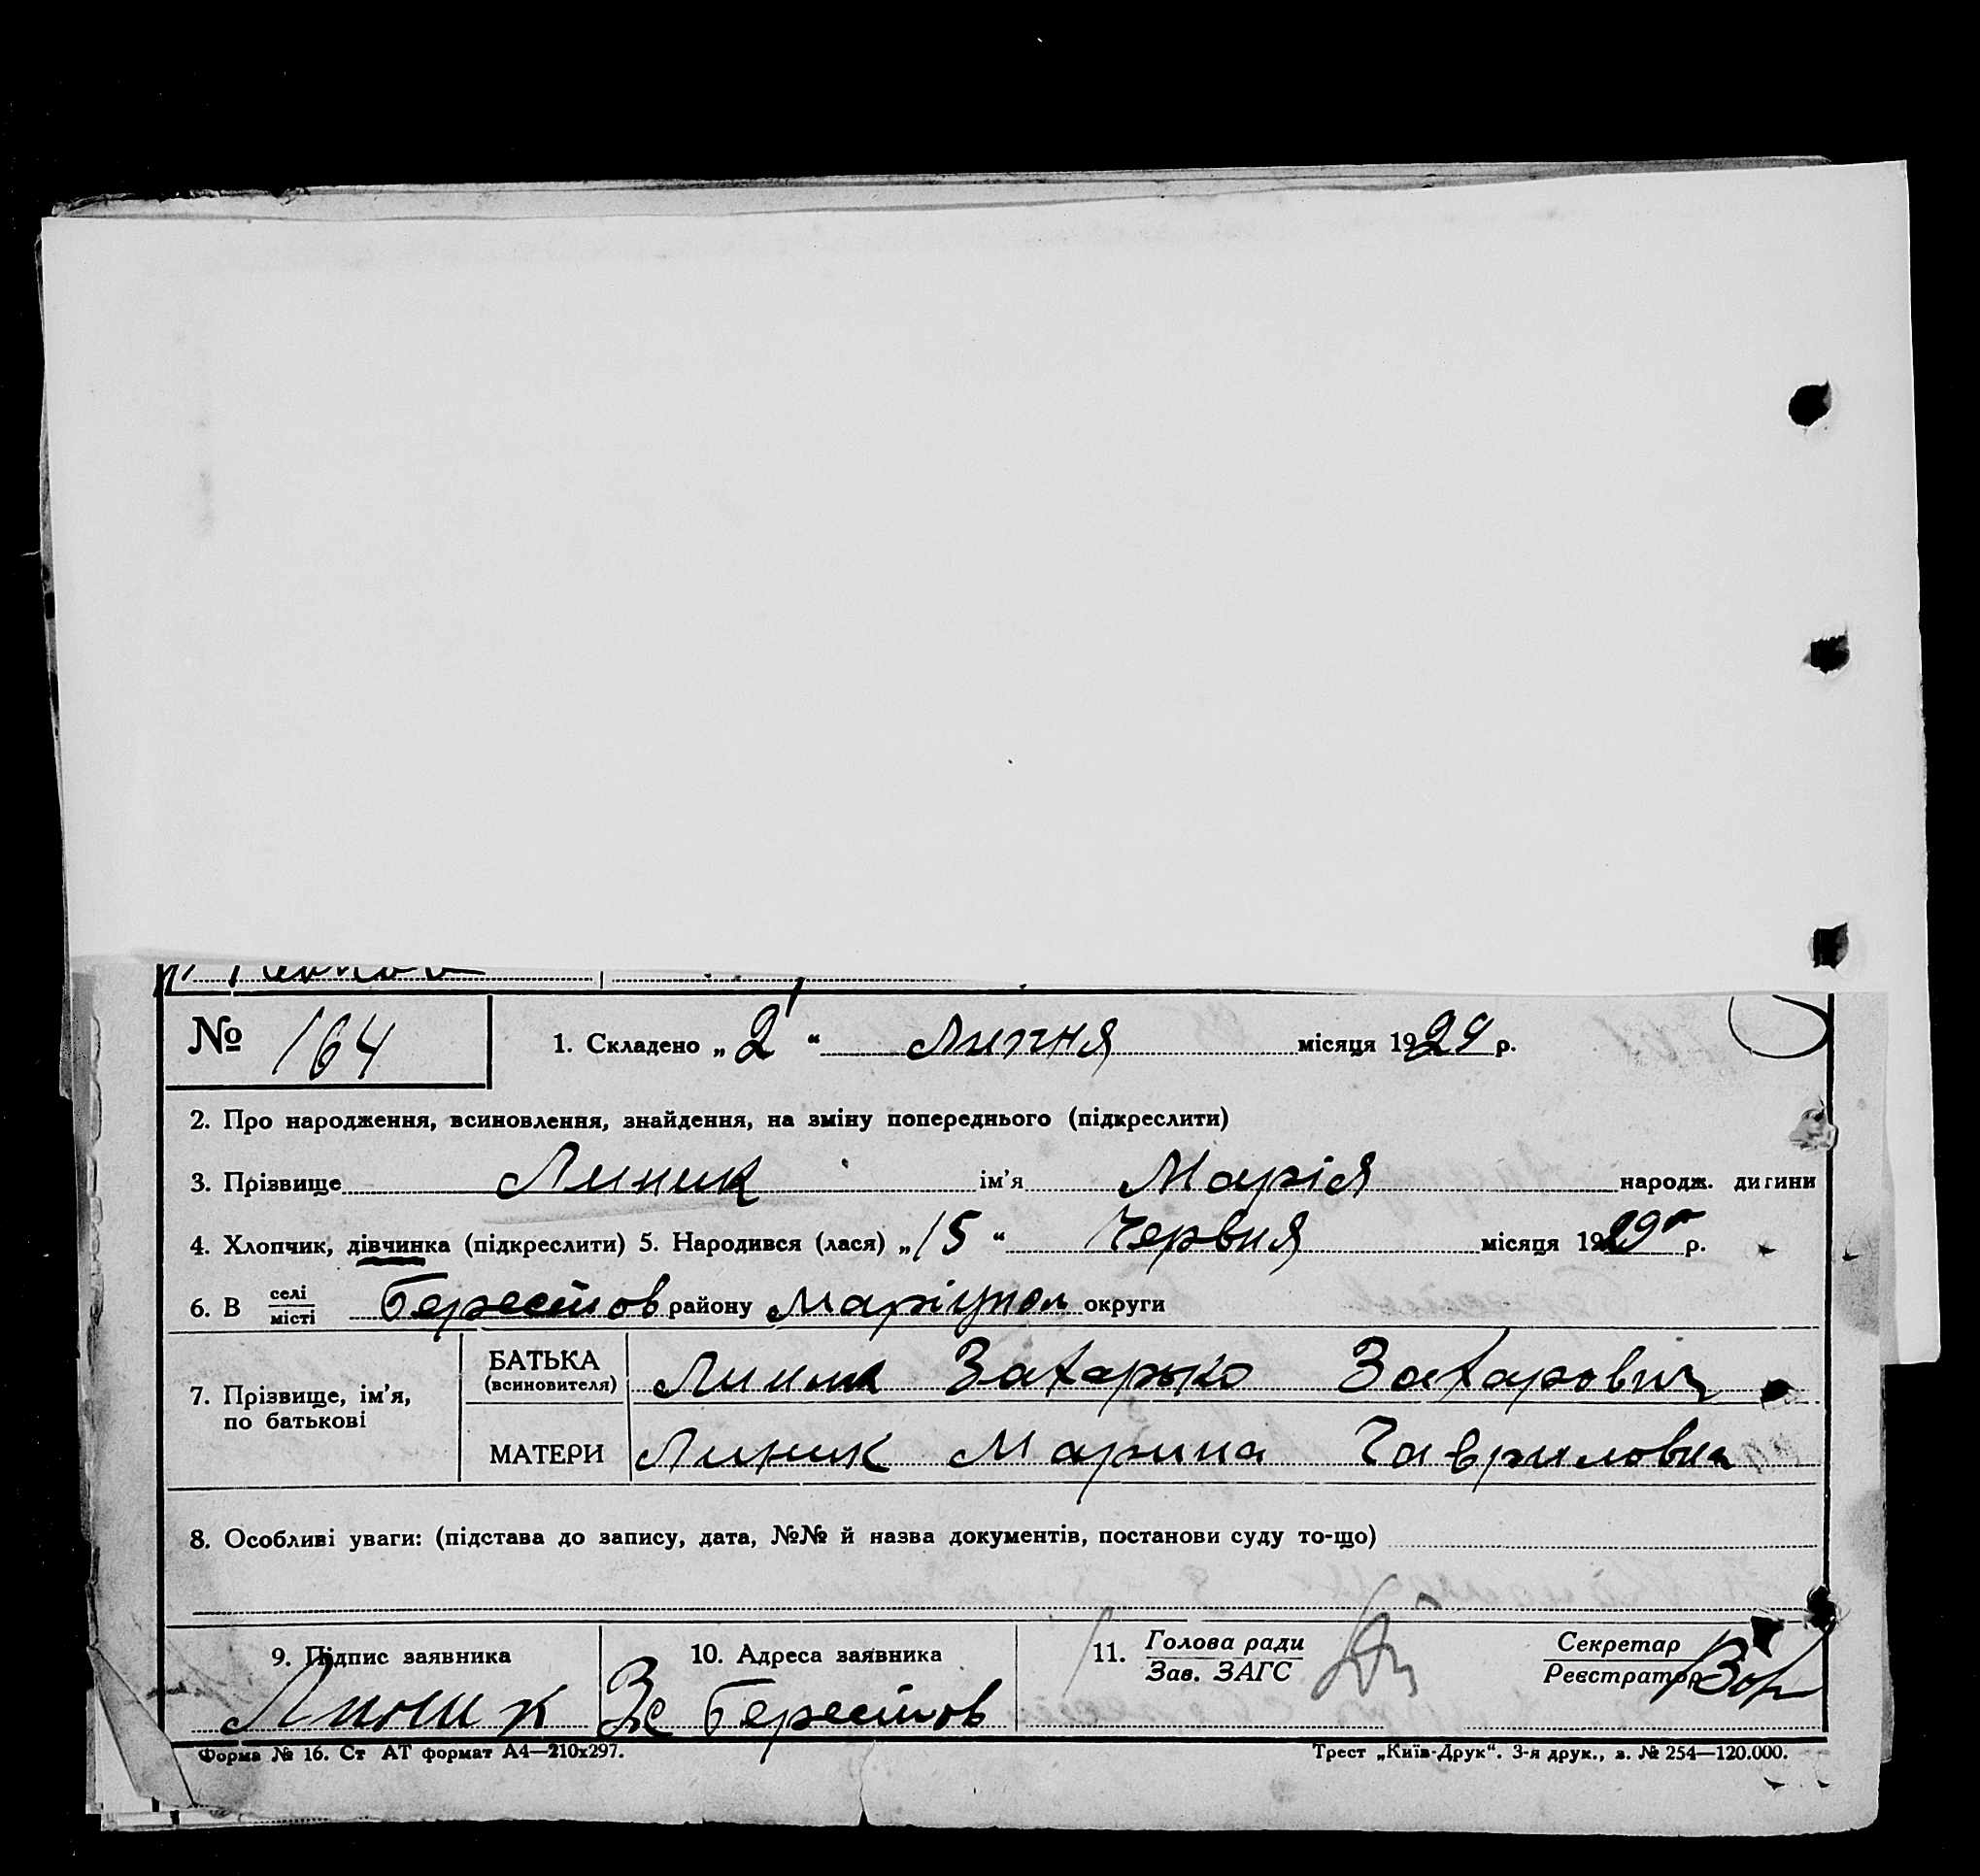 № 164
1. Складено „ 2 “ Липня місяця 1929 р.
2. Про народження, всиновлення, знайдення, на зміну попереднього (підкреслити)
3. Прізвище Линник ім’я Марія народж. дитини
4. Хлопчик, дівчинка (підкреслити) 5. Народився (лася) „ 15 “ Червня місяця 1929 р.
6. В селі місті Берестов району Маріупол округи
7. Прізвище, ім’я, по батькові
БАТЬКА (всиновителя) Линик Захарько Захарович
МАТЕРИ Линик Марина Гавриловна
8. Особливі уваги: (підстава до запису, дата, №№ й назва документів, постанови суду то-що)
9. Підпис заявника
Линик
10. Адреса заявника
Берестов
11. Голова ради
Зав. ЗАГС
Секретар
Реєстратор
Форма № 16. Ст АТ формат А4—210х297.
Трест „Київ-Друк“. 3-я друк., з. № 254—120.000.